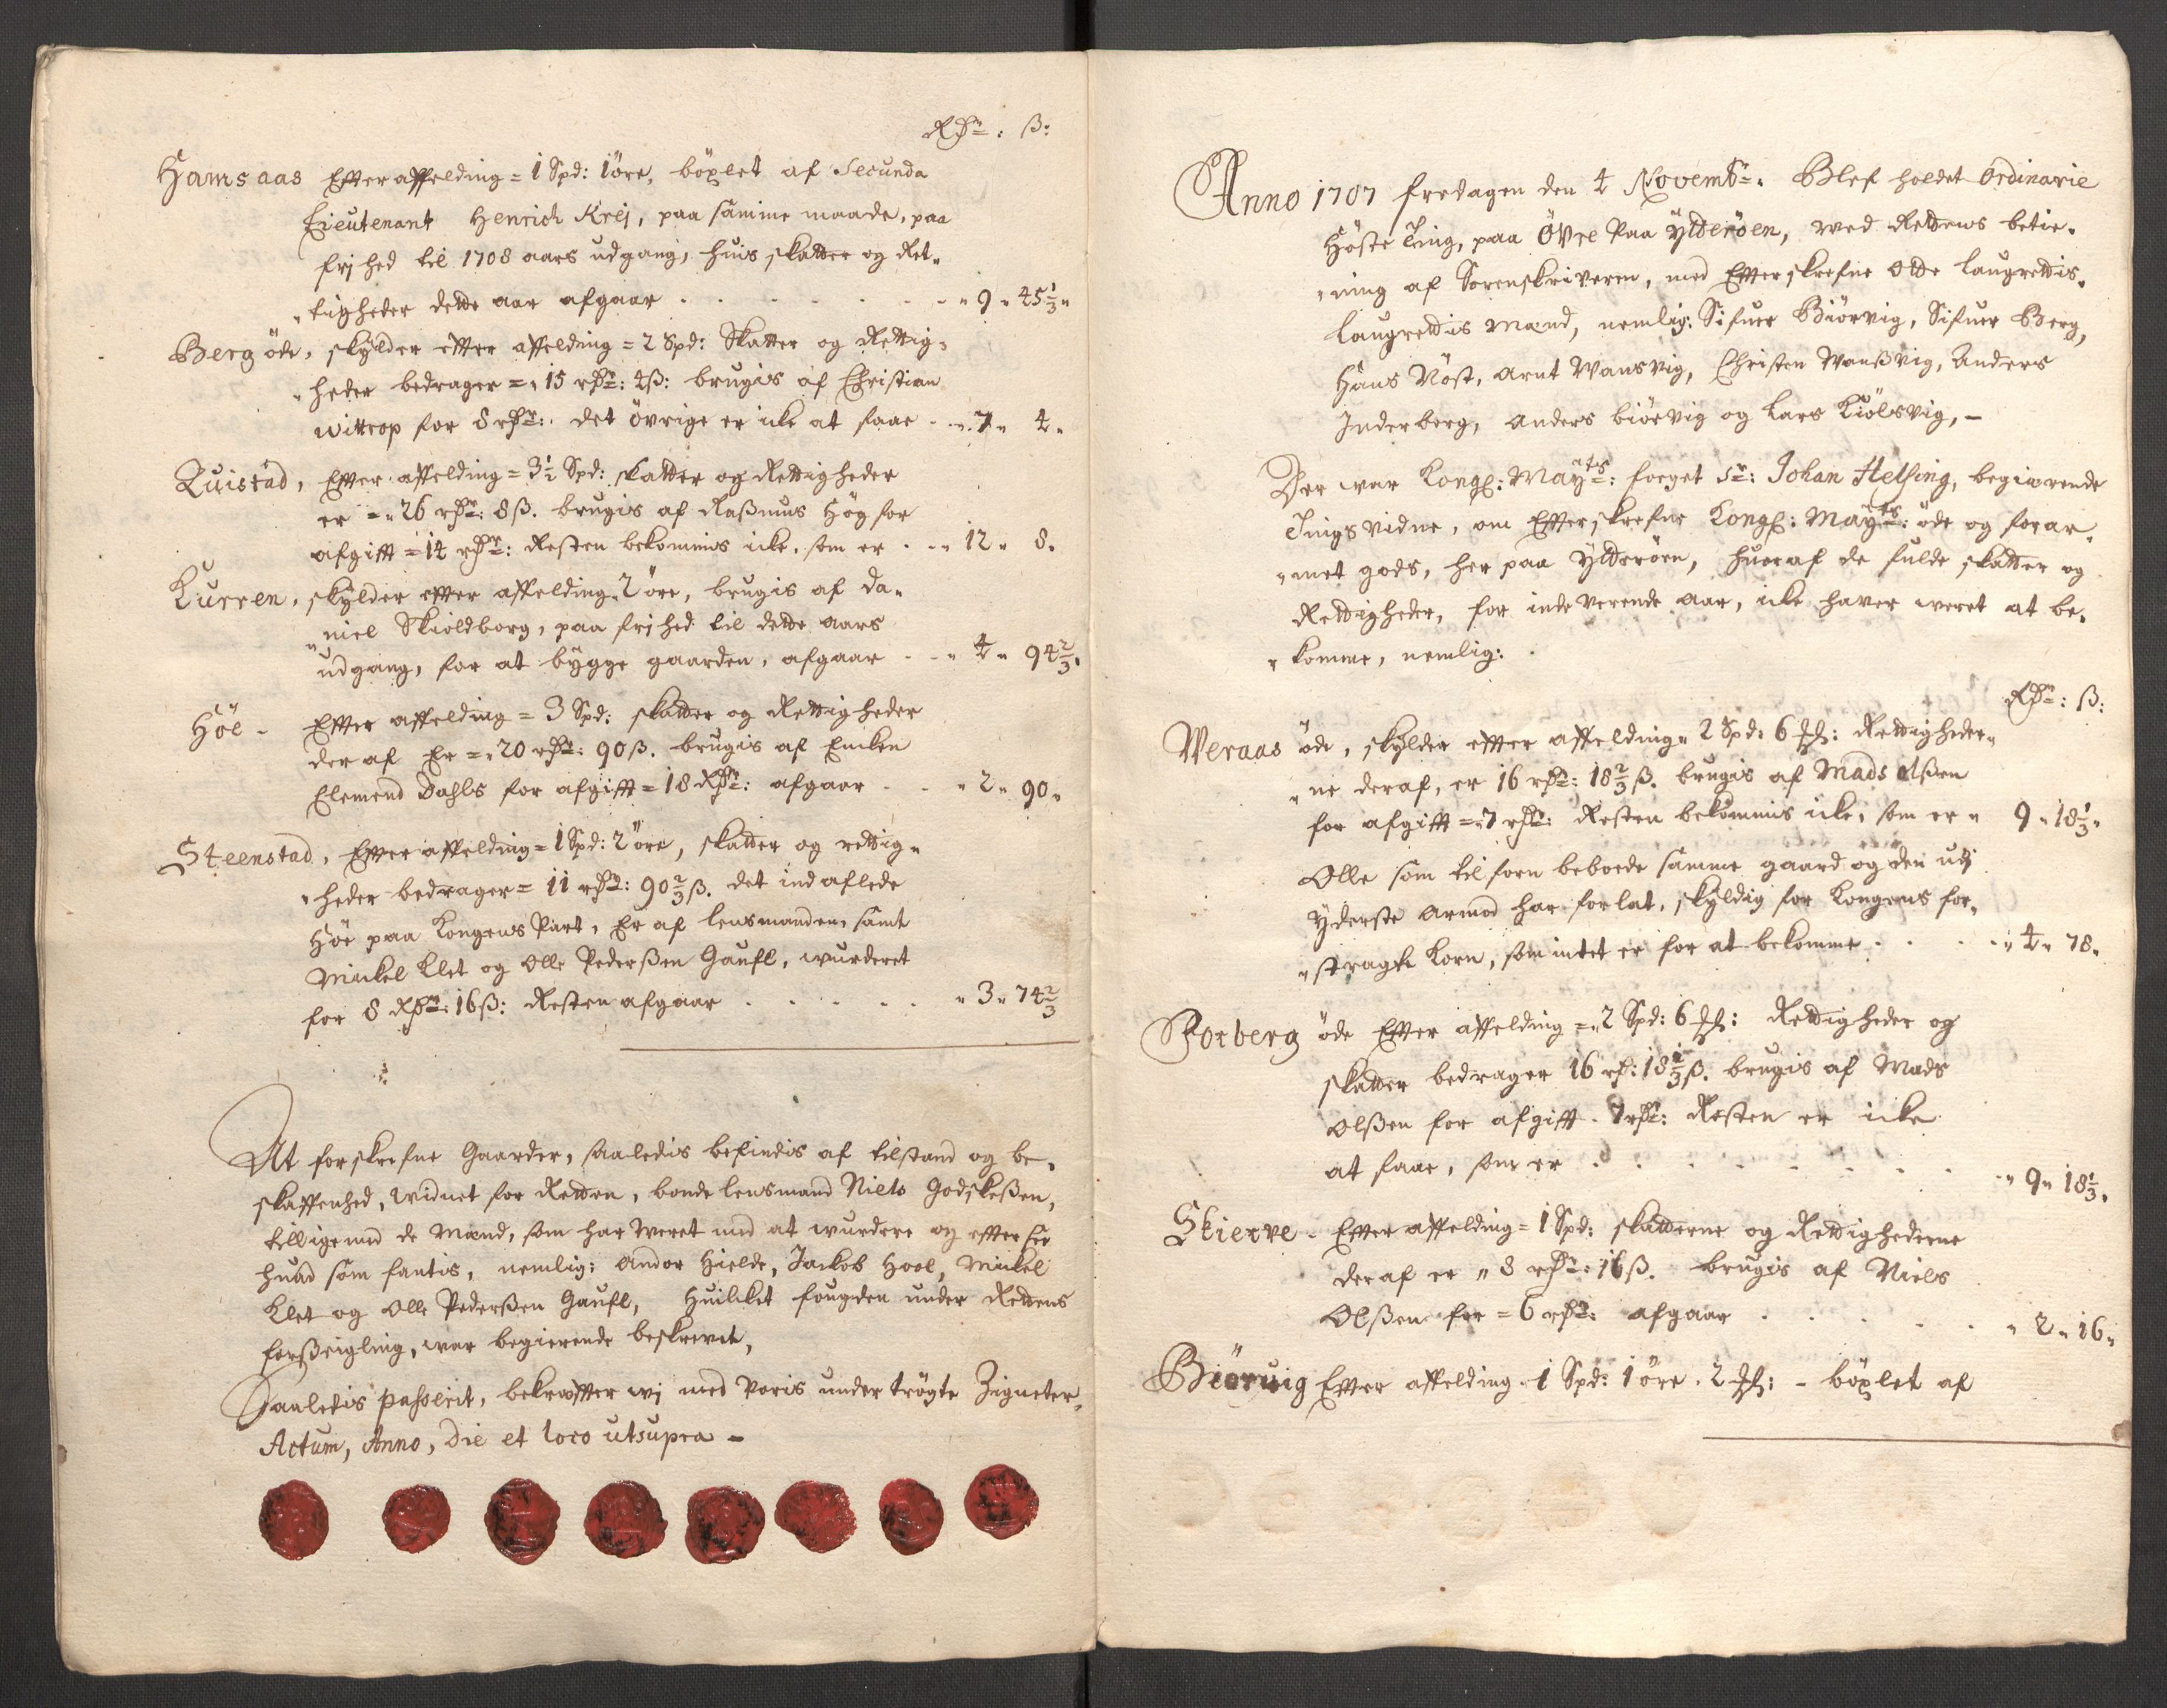 Rdr: ß:
Hamsaas Efter affelding = 1 Spd: 1 öre, böxlet af Secunda
Lieutenant Henrich Krej, paa samme maade, paa
frjhed til 1708 aars udgang, huis skatter og Ret„
„tigheder dette aar afgaar . . . . . „ 9 „ 45 1/3 „
Berg öde, skylder effter affelding = 2 Spd: Skatter og Rettig„
„heder bedrager = „ 15 rdr: 4ß: brugis af Christian
Wittrop for 8 rdr: det övrige er icke at faae . . „ 7 „ 4 „
Quistad, Efter affelding = 3½ Spd: skatter og Rettigheder
er = „ 26 rdr: 8ß. brugis af Raßmus Hög for
afgifft = 14 rdr: Resten bekommis icke, som er . . „ 12 „ 8.
Kurren, skylder effter affelding 2 öre, brugis af Da„
„niel Skioldborg, paa frjhed til dette aars
udgang, for at bygge gaarden, afgaar . . „ 4 „ 94 2/3.
Höl - Effter affelding = 3 Spd: skatter og Rettigheder
der af Er = „ 20 rdr: 90ß. brugis af Encken
Elemend Dahls for afgifft = 18 Rdr: afgaar . . „ 2 „ 90 „
Steenstad, Effter affelding = 1 Spd: 2 öre, skatter og rettig„
„heder bedrager = 11 rdr: 90 2/3 ß. det ind aflede
Höe paa Kongens Part, Er af lensmanden, samt
Mickel Klet og Olle Pederßen Gaufl, wurderet
for 8 Rdr: 16ß: Resten afgaar . . . . . „ 3 „ 74 2/3
At forskrefne Gaarder, saaledis befindis af tilstand og be„
skaffenhed, widnet for Retten, bonde lensmand Niels Godskeßen,
tillige med de Mænd, som har weret med at wurdere og effter see
huad som fantis, nemlig: Andor Hielde, Jackob Hool, Mickel
Klet og Olle Pederßen Gaufl, Huilcket fougden under Rettens
forßeigling, war begierende beskrevet,
Saaledis passerit, bekræffter wj med Voris under trögte Zigneter,
Actum, Anno, Die et loco utsupra -
Anno 1707 fredagen den 4 Novembr: Blef holdet Ordinarie
Höste Ting, paa Övre Paa Ytterøen, med Rettens betie„
„ning af Sorenskriveren, med Effter skrefne Otte laugrettis„
laugrettis Mænd, nemlig: Sifuer Biörvig, Sifuer Berg,
Hans Nöst, Arnt Wansvig, Christen Wanßvig, Anders
Inderberg, Anders biörvig og Lars Kiölsvig, -
Der war Kongl: Mayts: foeget Sr: Johan Helsing, begierende
Tingsvidne, om Effter skrefne Kongl: Mayts: öde og forar„
„met gods, her paa Ytterøen, huoraf de fulde skatter og
Rettigheder, for inde verende aar, icke haver weret at be„
„komme, nemlig:
Rdr: ß:
Weraas öde, skylder effter affelding „ 2 Spd: 6 Jl: Rettigheder„
„ne deraf, er 16 rdr: 18 2/3 ß. brugis af Mads Olßen
for afgifft = „ 7 rdr: Resten bekommis icke, som er „ 9 „ 18 1/3 „
Olle som til forn beboede samme gaard og den udj
yderste Armod har forlat, skyldig for Kongens for„
„stragte Korn, som intet er for at bekomme . . . „ 4 „ 78 „
Forberg öde Effter affelding = „ 2 Spd: 6 Jl: Rettigheder og
skatter bedrager 16 rd: 18 1/3 ß. brugis af Mads
Olßen for afgifft . 7 rdr: Resten er icke
at faae, som er . . . . . . . „ 9 „ 18 1/3.
Skierve - Effter affelding = 1 Spd: skatterne og Rettighederne
deraf er „ 8 rdr: 16ß. brugis af Niels
Olßen for = 6 rdr: afgaar . . . . . „ 2 „ 16 „
Biörvig Effter affelding . 1 Spd: 1 öre . 2 Jl: - böxlet af